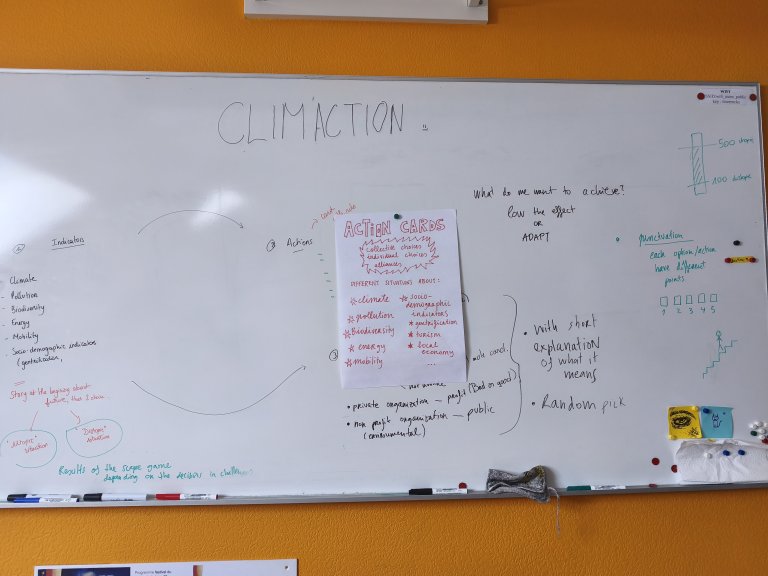 CLIM'ACTION
WHY
500 utopia
100
What do we want to achieve?
low the effect
OR
ADAPT
punctuation
each option/action
have different
points
1 2 3 4 5
Indicators
Climate
Pollution
Biodiversity
Energy
Mobility
Socio-demographic indicators
Story at the begining about
future, thus 2
"Utopic"
situation
"Distopic"
situation
Results of the scape game
depending on the decisions in challenges
Actions
ACTION CARDS
collective choices
individual choices
alliances
DIFFERENT SITUATIONS ABOUT:
* climate
* pollution
* Biodiversity
* energy
* mobility
* socio-
demographic
indicators
* gentrification
* turism
* local
economy
...
• private organization — profit (Bad or good)
• non profit organization — public
• With short
explanation
of what it
means
• Random pick